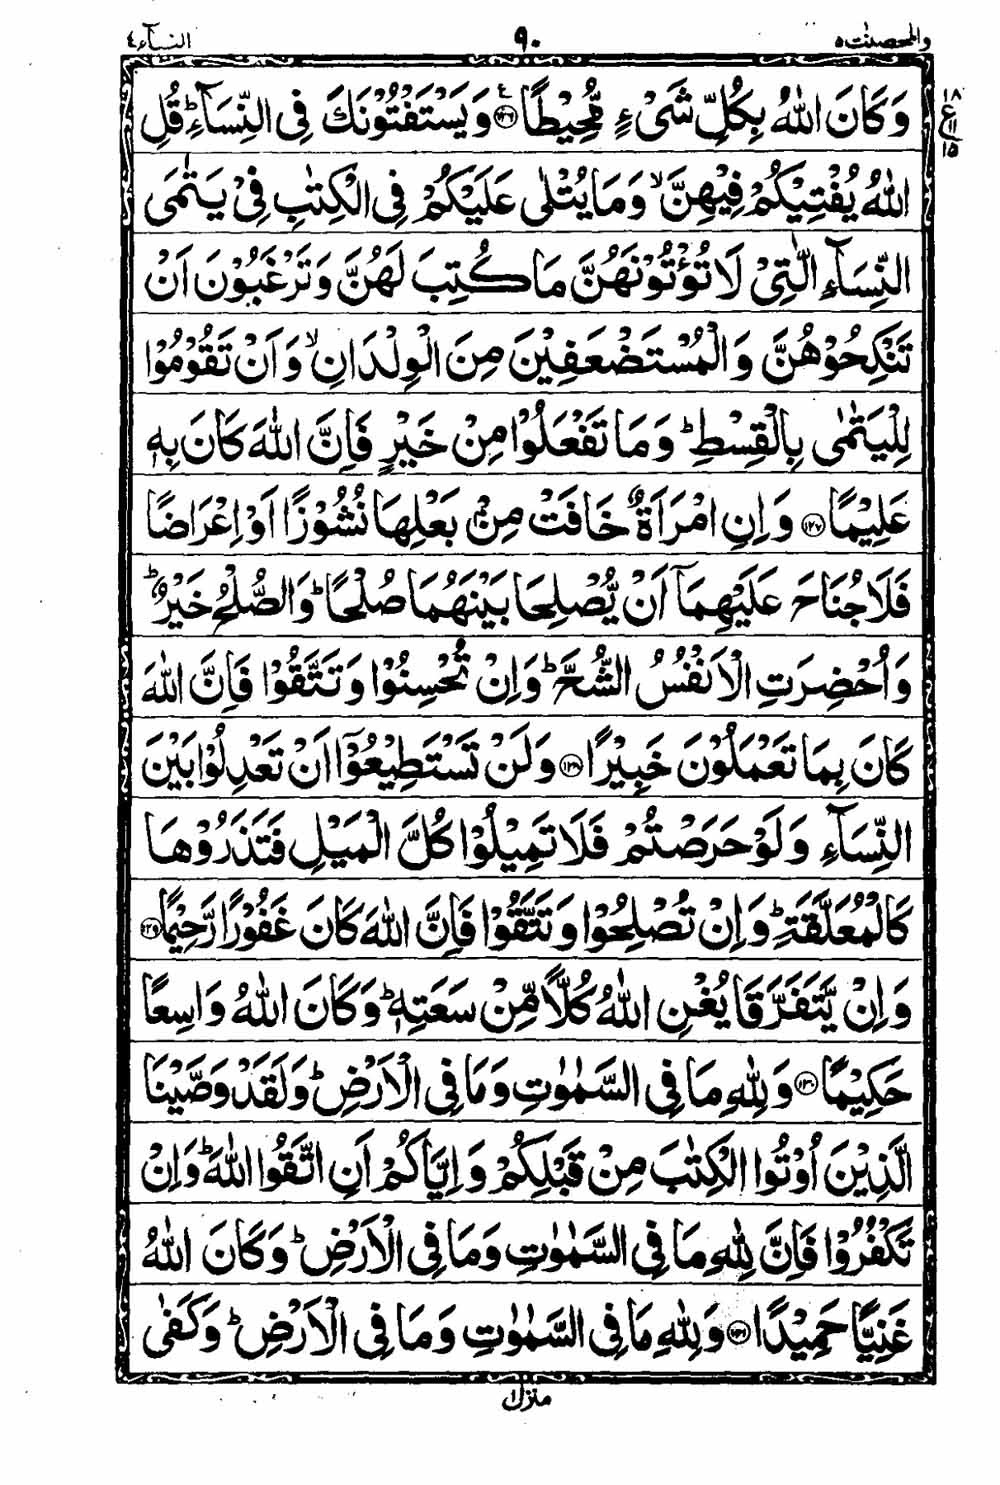 والمحصنت ٥ ٩٠ النسآء ٤
وَكَانَ اللّٰهُ بِكُلِّ شَیْءٍ مُّحِیْطًا ۧ‏﴿۱۲۶﴾ وَیَسْتَفْتُوْنَكَ فِی النِّسَآءِ ؕ قُلِ
١٨
ع
١١
١٥
اللّٰهُ یُفْتِیْكُمْ فِیْهِنَّ ۙ وَمَا یُتْلٰی عَلَیْكُمْ فِی الْكِتٰبِ فِیْ یَتٰمَی
النِّسَآءِ الّٰتِیْ لَا تُؤْتُوْنَهُنَّ مَا كُتِبَ لَهُنَّ وَتَرْغَبُوْنَ اَنْ
تَنْكِحُوْهُنَّ وَالْمُسْتَضْعَفِیْنَ مِنَ الْوِلْدَانِ ۙ وَاَنْ تَقُوْمُوْا
لِلْیَتٰمٰی بِالْقِسْطِ ؕ وَمَا تَفْعَلُوْا مِنْ خَیْرٍ فَاِنَّ اللّٰهَ كَانَ بِهٖ
عَلِیْمًا ﴿۱۲۷﴾ وَاِنِ امْرَاَةٌ خَافَتْ مِنْۢ بَعْلِهَا نُشُوْزًا اَوْ اِعْرَاضًا
فَلَا جُنَاحَ عَلَیْهِمَاۤ اَنْ یُّصْلِحَا بَیْنَهُمَا صُلْحًا ؕ وَالصُّلْحُ خَیْرٌ ؕ
وَاُحْضِرَتِ الْاَنْفُسُ الشُّحَّ ؕ وَاِنْ تُحْسِنُوْا وَتَتَّقُوْا فَاِنَّ اللّٰهَ
كَانَ بِمَا تَعْمَلُوْنَ خَبِیْرًا ﴿۱۲۸﴾ وَلَنْ تَسْتَطِیْعُوْۤا اَنْ تَعْدِلُوْا بَیْنَ
النِّسَآءِ وَلَوْ حَرَصْتُمْ فَلَا تَمِیْلُوْا كُلَّ الْمَیْلِ فَتَذَرُوْهَا
كَالْمُعَلَّقَةِ ؕ وَاِنْ تُصْلِحُوْا وَتَتَّقُوْا فَاِنَّ اللّٰهَ كَانَ غَفُوْرًا رَّحِیْمًا ﴿۱۲۹﴾
وَاِنْ یَّتَفَرَّقَا یُغْنِ اللّٰهُ كُلًّا مِّنْ سَعَتِهٖ ؕ وَكَانَ اللّٰهُ وَاسِعًا
حَكِیْمًا ﴿۱۳۰﴾ وَلِلّٰهِ مَا فِی السَّمٰوٰتِ وَمَا فِی الْاَرْضِ ؕ وَلَقَدْ وَصَّیْنَا
الَّذِیْنَ اُوْتُوا الْكِتٰبَ مِنْ قَبْلِكُمْ وَاِیَّاكُمْ اَنِ اتَّقُوا اللّٰهَ ؕ وَاِنْ
تَكْفُرُوْا فَاِنَّ لِلّٰهِ مَا فِی السَّمٰوٰتِ وَمَا فِی الْاَرْضِ ؕ وَكَانَ اللّٰهُ
غَنِیًّا حَمِیْدًا ﴿۱۳۱﴾ وَلِلّٰهِ مَا فِی السَّمٰوٰتِ وَمَا فِی الْاَرْضِ ؕ وَكَفٰی
منزل ١